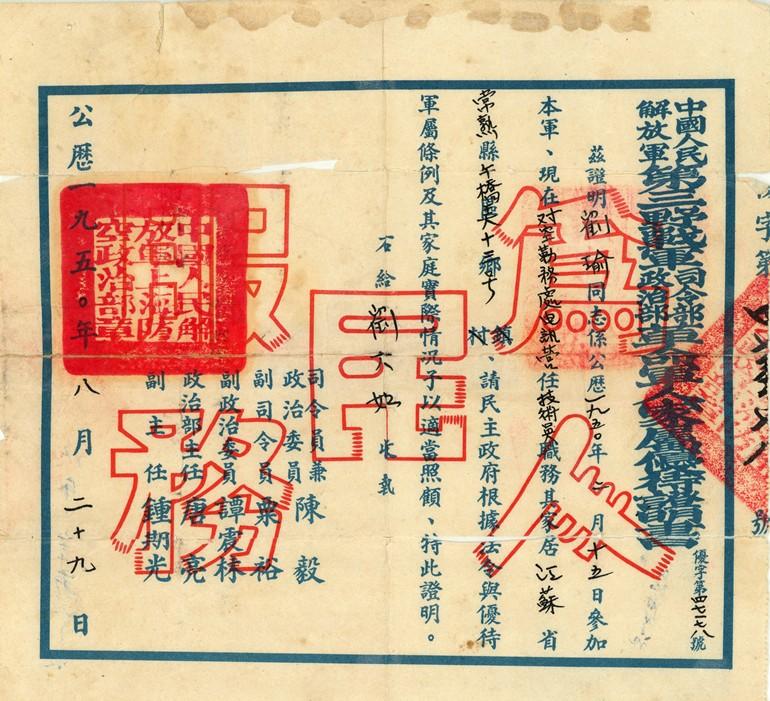 中國人民
解放軍
第三野戰軍
司令部
政治部
革命軍人家屬優待證明書
優字第四七一七八號
字第
號
茲證明劉瑜同志係公歷一九五〇年二月十五日參加
本軍、現在对空勤務處電訊营任技術員職務其家居江蘇省
常熟縣
十三鄉
鎮
村
、請民主政府根據法令與優待
軍屬條例及其家庭實際情况予以適當照顧、特此證明。
右給劉大如收執
司令員兼
政治委員
陳毅
副司令員粟裕
副政治委員譚震林
政治部主任唐亮
副主任鍾期光
公歷一九五〇年八月二十九日
為人民服務
中國人民解
放軍上海防
空政治部章